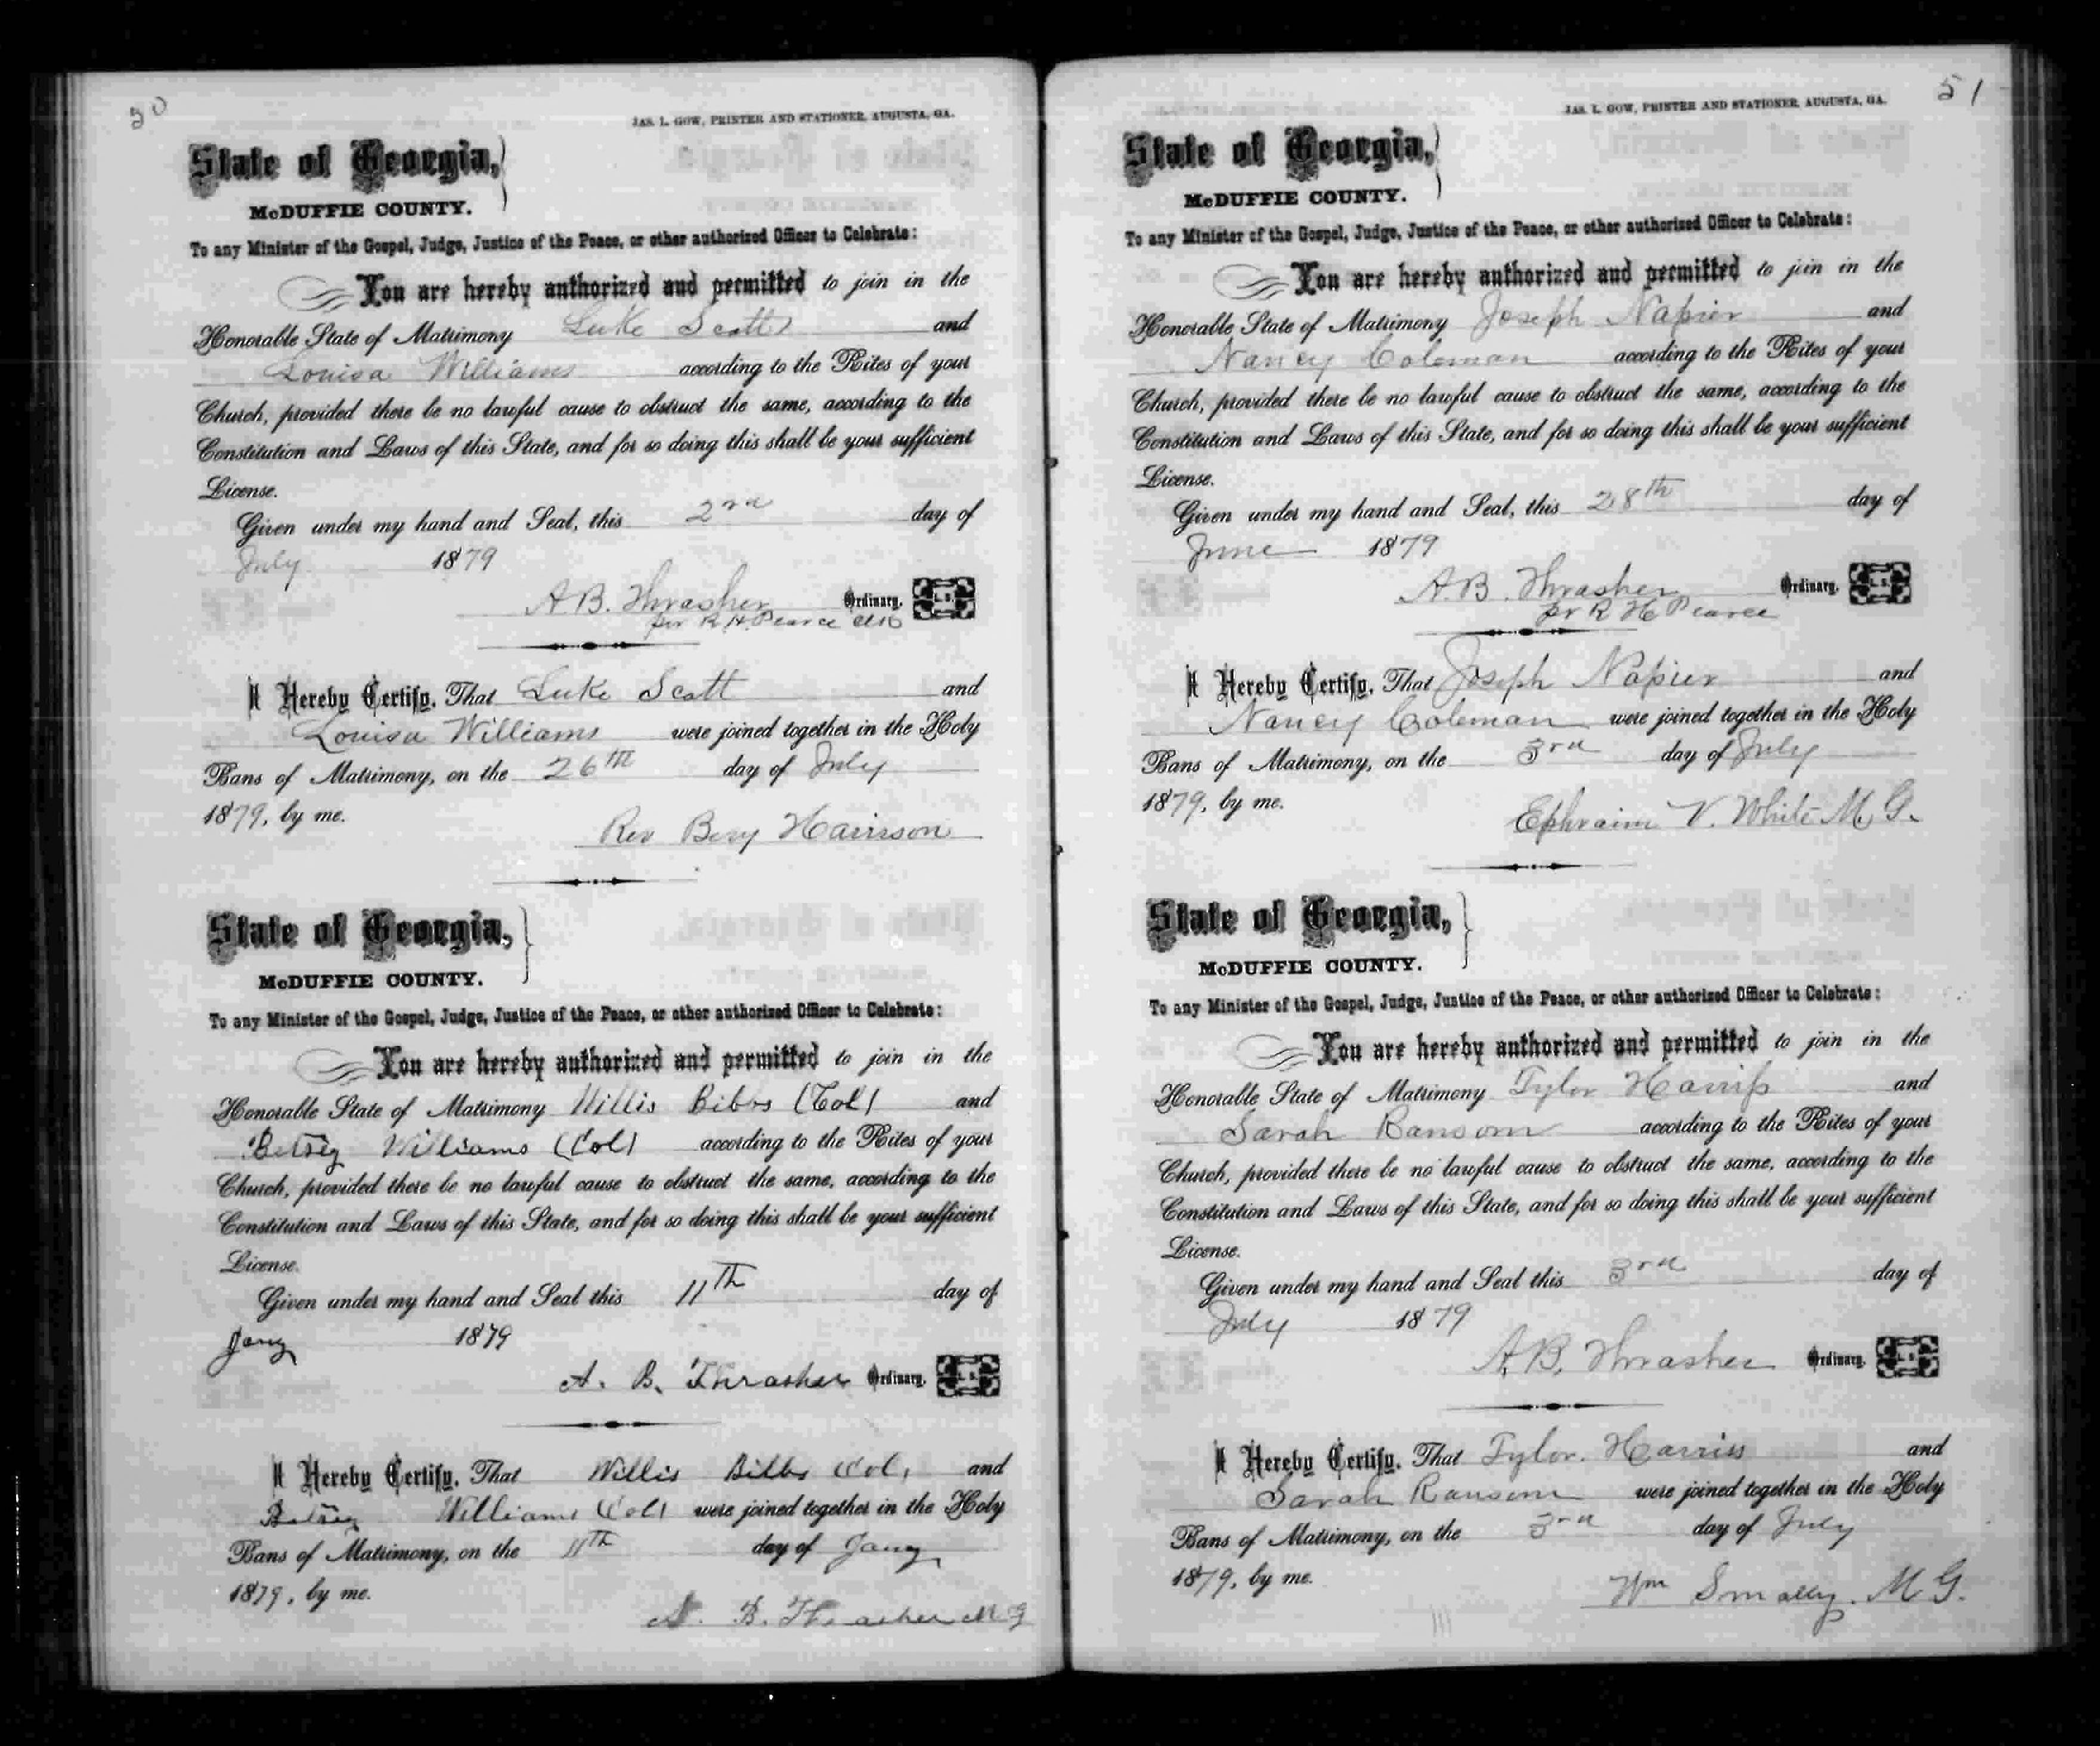 50
JAS. L. GOW, PRINTER AND STATIONER, AUGUSTA, GA.
State of Georgia,
McDUFFIE COUNTY.
To any Minister of the Gospel, Judge, Justice of the Peace, or other authorized Officer to Celebrate:
You are hereby authorized and permitted to join in the
Honorable State of Matrimony Luke Scott and
Louisa Williams according to the Rites of your
Church, provided there be no lawful cause to obstruct the same, according to the
Constitution and Laws of this State, and for so doing this shall be your sufficient
License.
Given under my hand and Seal, this 2nd day of
July 1879
A B. Thrasher Ordinary. L. S.
per R. H. Pearce
I Hereby Certify, That Luke Scott and
Louisa Williams were joined together in the Holy
Bans of Matrimony, on the 26th day of July
1879, by me.
Rev Beny Harrison
State of Georgia,
McDUFFIE COUNTY.
To any Minister of the Gospel, Judge, Justice of the Peace, or other authorized Officer to Celebrate:
You are hereby authorized and permitted to join in the
Honorable State of Matrimony Willis Bibbs (Col) and
Betsey Williams (Col) according to the Rites of your
Church, provided there be no lawful cause to obstruct the same, according to the
Constitution and Laws of this State, and for so doing this shall be your sufficient
License.
Given under my hand and Seal this 11th day of
Jany 1879
A. B. Thrasher Ordinary. L. S.
I Hereby Certify, That Willis Bibbs Col, and
Betsey Williams (Col) were joined together in the Holy
Bans of Matrimony, on the 11th day of Jany
1879, by me.
A. B. Thrasher M G
51
JAS. L. GOW, PRINTER AND STATIONER, AUGUSTA, GA.
State of Georgia,
McDUFFIE COUNTY.
To any Minister of the Gospel, Judge, Justice of the Peace, or other authorized Officer to Celebrate:
You are hereby authorized and permitted to join in the
Honorable State of Matrimony Joseph Napier and
Nancy Coleman according to the Rites of your
Church, provided there be no lawful cause to obstruct the same, according to the
Constitution and Laws of this State, and for so doing this shall be your sufficient
License.
Given under my hand and Seal, this 28th day of
June 1879
A. B. Thrasher Ordinary. L. S.
pr R H Pearce
I Hereby Certify, That Joseph Napier and
Nancy Coleman were joined together in the Holy
Bans of Matrimony, on the 3rd day of July
1879, by me.
Ephraim V. White M. G.
State of Georgia,
McDUFFIE COUNTY.
To any Minister of the Gospel, Judge, Justice of the Peace, or other authorized Officer to Celebrate:
You are hereby authorized and permitted to join in the
Honorable State of Matrimony Tylor Harriss and
Sarah Ransom according to the Rites of your
Church, provided there be no lawful cause to obstruct the same, according to the
Constitution and Laws of this State, and for so doing this shall be your sufficient
License.
Given under my hand and Seal this 3rd day of
July 1879
A. B. Thrasher Ordinary. L. S.
I Hereby Certify, That Tylor. Harriss and
Sarah Ransom were joined together in the Holy
Bans of Matrimony, on the 3rd day of July
1879, by me.
Wm Smalley. M G.